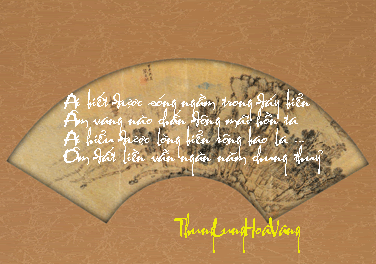 Ai biết được sóng ngầm trong đáy biển
Âm vang nào chấn động mát hồn ta
Ai hiểu được lòng biển rộng bao la ...
Ôm đất liền vẫn ngàn năm chung thuỷ
ThungLungHoaVang